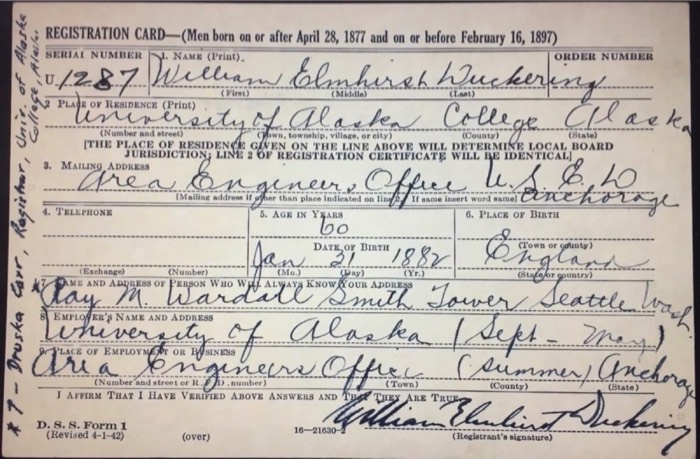 REGISTRATION CARD—(Men born on or after April 28, 1877 and on or before February 16, 1897)
SERIAL NUMBER 1. NAME (Print) ORDER NUMBER
U 1287 William Elmhirst Duckering
(First) (Middle) (Last)
2. PLACE OF RESIDENCE (Print)
University of Alaska College Alaska
(Number and street) (Town, township, village, or city) (County) (State)
[THE PLACE OF RESIDENCE GIVEN ON THE LINE ABOVE WILL DETERMINE LOCAL BOARD
JURISDICTION; LINE 2 OF REGISTRATION CERTIFICATE WILL BE IDENTICAL]
3. MAILING ADDRESS
Area Engineers Office U.S.E.D
Anchorage
[Mailing address if other than place indicated on line 2. If same insert word same]
4. TELEPHONE 5. AGE IN YEARS 6. PLACE OF BIRTH
60
DATE OF BIRTH (Town or county)
Jan 31 1882 England
(Exchange) (Number) (Mo.) (Day) (Yr.) (State or country)
*7. NAME AND ADDRESS OF PERSON WHO WILL ALWAYS KNOW YOUR ADDRESS
Ray M. Wardall Smith Tower Seattle Wash.
8. EMPLOYER'S NAME AND ADDRESS
University of Alaska (Sept - May)
9. PLACE OF EMPLOYMENT OR BUSINESS
Area Engineers Office (summer) Anchorage
(Number and street or R. F. D. number) (Town) (County) (State)
I AFFIRM THAT I HAVE VERIFIED ABOVE ANSWERS AND THAT THEY ARE TRUE.
William Elmhirst Duckering
D. S. S. Form 1
(Revised 4-1-42) (over) 16—21630-2 (Registrant's signature)
* 7 - Druska Carr, Registrar, Univ. of Alaska
College, Alaska